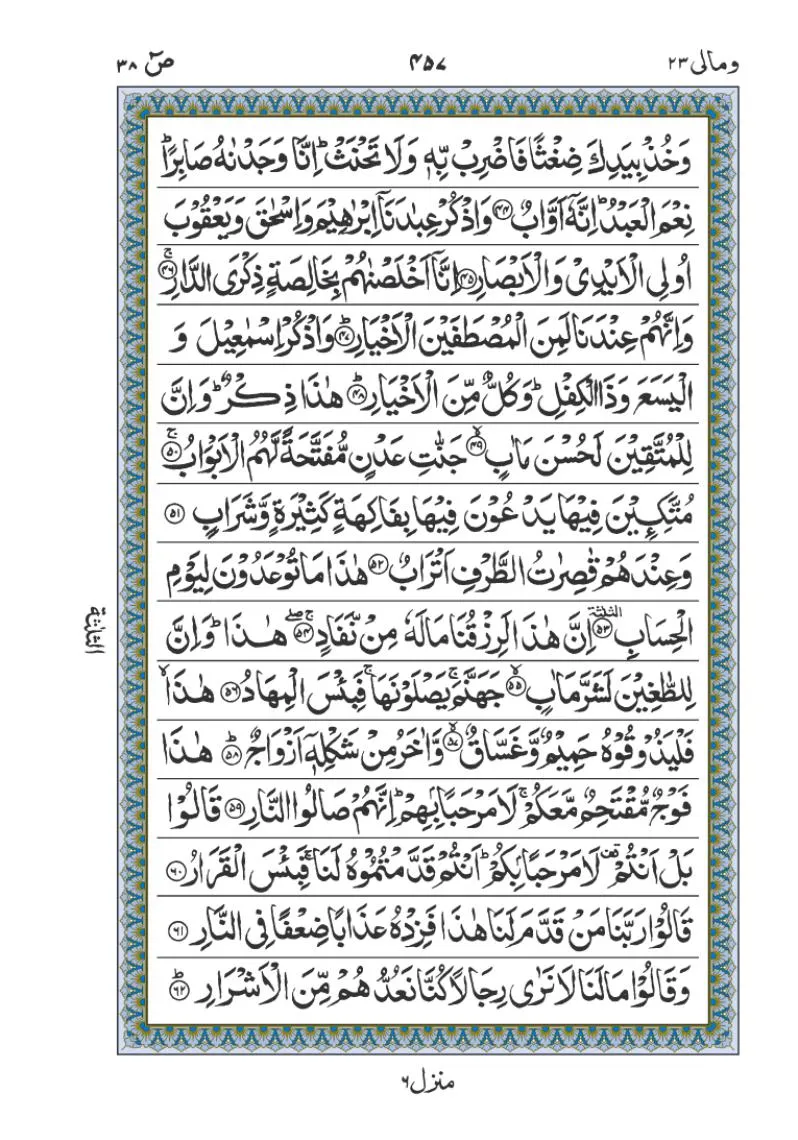 ومالی ۲۳
۴۵۷
صٓ ۳۸
وَخُذْ بِيَدِكَ ضِغْثًا فَاضْرِبْ بِّهٖ وَلَا تَحْنَثْ ؕ اِنَّا وَجَدْنٰهُ صَابِرًا ؕ
نِعْمَ الْعَبْدُ ؕ اِنَّهٗۤ اَوَّابٌ ﴿۴۴﴾ وَاذْكُرْ عِبٰدَنَاۤ اِبْرٰهِيْمَ وَاِسْحٰقَ وَيَعْقُوْبَ
اُولِى الْاَيْدِىْ وَالْاَبْصَارِ ﴿۴۵﴾ اِنَّاۤ اَخْلَصْنٰهُمْ بِخَالِصَةٍ ذِكْرَى الدَّارِ ۚ ﴿۴۶﴾
وَاِنَّهُمْ عِنْدَنَا لَمِنَ الْمُصْطَفَيْنَ الْاَخْيَارِ ؕ ﴿۴۷﴾ وَاذْكُرْ اِسْمٰعِيْلَ وَ
الْيَسَعَ وَذَا الْكِفْلِ ؕ وَكُلٌّ مِّنَ الْاَخْيَارِ ؕ ﴿۴۸﴾ هٰذَا ذِكْرٌ ؕ وَاِنَّ
لِلْمُتَّقِيْنَ لَحُسْنَ مَاٰبٍ ۙ ﴿۴۹﴾ جَنّٰتِ عَدْنٍ مُّفَتَّحَةً لَّهُمُ الْاَبْوَابُ ۚ ﴿۵۰﴾
مُتَّكِـِٕيْنَ فِيْهَا يَدْعُوْنَ فِيْهَا بِفَاكِهَةٍ كَثِيْرَةٍ وَّشَرَابٍ ﴿۵۱﴾
وَعِنْدَهُمْ قٰصِرٰتُ الطَّرْفِ اَتْرَابٌ ﴿۵۲﴾ هٰذَا مَا تُوْعَدُوْنَ لِيَوْمِ
الْحِسَابِ ﴿۵۳﴾ الثلثة اِنَّ هٰذَا لَرِزْقُنَا مَا لَهٗ مِنْ نَّفَادٍ ۚۖ ﴿۵۴﴾ هٰذَا ؕ وَاِنَّ
لِلطّٰغِيْنَ لَشَرَّ مَاٰبٍ ۙ ﴿۵۵﴾ جَهَنَّمَ ۚ يَصْلَوْنَهَا ۚ فَبِئْسَ الْمِهَادُ ﴿۵۶﴾ هٰذَا ۙ
فَلْيَذُوْقُوْهُ حَمِيْمٌ وَّغَسَّاقٌ ۙ ﴿۵۷﴾ وَّاٰخَرُ مِنْ شَكْلِهٖۤ اَزْوَاجٌ ؕ ﴿۵۸﴾ هٰذَا
فَوْجٌ مُّقْتَحِمٌ مَّعَكُمْ ۚ لَا مَرْحَبًۢا بِهِمْ ؕ اِنَّهُمْ صَالُوا النَّارِ ﴿۵۹﴾ قَالُوْا
بَلْ اَنْتُمْ لَا مَرْحَبًۢا بِكُمْ ؕ اَنْتُمْ قَدَّمْتُمُوْهُ لَنَا ۚ فَبِئْسَ الْقَرَارُ ﴿۶۰﴾
قَالُوْا رَبَّنَا مَنْ قَدَّمَ لَنَا هٰذَا فَزِدْهُ عَذَابًا ضِعْفًا فِى النَّارِ ﴿۶۱﴾
وَقَالُوْا مَا لَنَا لَا نَرٰى رِجَالًا كُنَّا نَعُدُّهُمْ مِّنَ الْاَشْرَارِ ؕ ﴿۶۲﴾
الثلثة
منزل ۶